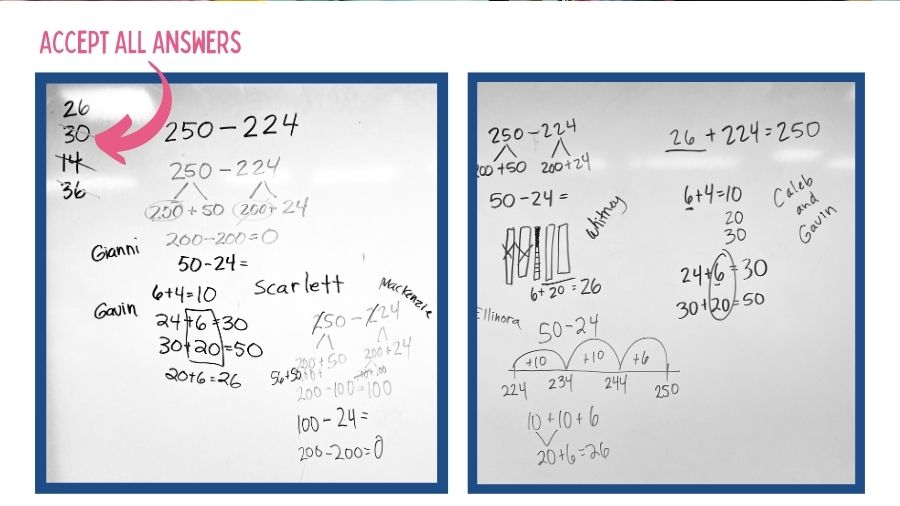 ACCEPT ALL ANSWERS
26
30
14
36
250-224
250-224
200+50 200+24
200-200=0
Gianni
50-24=
Gavin
6+4=10
24+6=30
30+20=50
20+6=26
Scarlett
Mackenzie
250-224
200+50 200+24
56+50
200-100=100
100-24=
200-200=0
250-224
200+50 200+24
50-24=
Whitney
6+20=26
Ellinora
50-24
+10 +10 +6
224 234 244 250
10+10+6
20+6=26
26+224=250
6+4=10
20
30
Caleb
and
Gavin
24+6=30
30+20=50